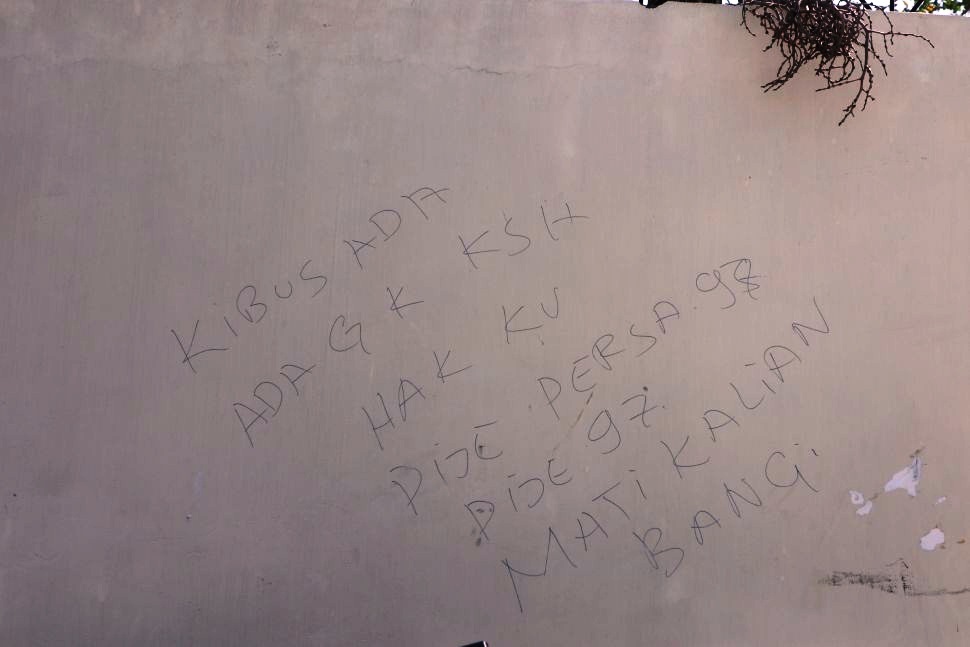 KiBUS ADA
ADA GK KSH
HAK KU
PIJE PERSA.98
PIJE 97.
MATI KALIAN
BANG.